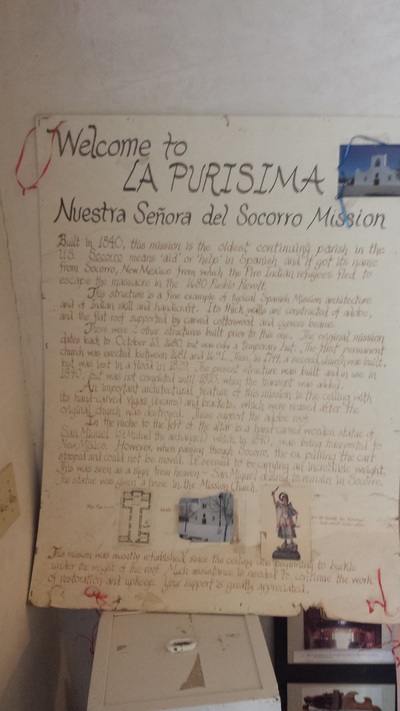 Welcome to
LA PURISIMA
Nuestra Señora del Socorro Mission
Built in 1840, this mission is the oldest continuing parish in the
U.S. Socorro means 'aid' or 'help' in Spanish and it got its name
from Socorro, New Mexico from which the Piro Indian refugees fled to
escape the massacre in the 1680 Pueblo Revolt.
This structure is a fine example of typical Spanish Mission architecture
and of Indian skill and handicraft. Its thick walls are constructed of adobe,
and the flat roof supported by carved cottonwood and cypress beams.
There were 2 other structures built prior to this one. The original mission
dates back to October 13, 1680 but was only a temporary hut. The first permanent
church was erected between 1681 and 1691. Then, in a second church was built,
but was lost in a flood in 1829. The present structure was built and in use in
1840, but was not completed until when the transept was added.
An important architectural feature of this mission is the ceiling with
its hand-carved vigas (beams) and brackets which were reused after the
original church was destroyed. These support the adobe roof.
In the niche to the left of the altar is a hand-carved wooden statue of
San Miguel (St. Michael the archangel) which, in was being transported to
New Mexico. However, when passing though Socorro, the ox pulling the cart
stopped and could not be moved. It seemed to be carrying an incredible weight.
This was seen as a sign from heaven - San Miguel desired to remain in Socorro.
The statue was given a home in the Mission Church.
This mission was mostly since the ceiling was beginning to buckle
under the weight of the roof. Much assistance is needed to continue the work
of restoration and upkeep. Your support is greatly appreciated.